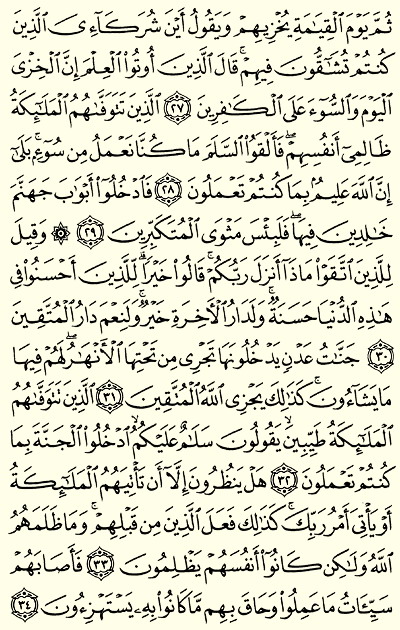 ثُمَّ يَوْمَ ٱلْقِيَٰمَةِ يُخْزِيهِمْ وَيَقُولُ أَيْنَ شُرَكَآءِىَ ٱلَّذِينَ
كُنتُمْ تُشَٰٓقُّونَ فِيهِمْ ۚ قَالَ ٱلَّذِينَ أُوتُوا۟ ٱلْعِلْمَ إِنَّ ٱلْخِزْىَ
ٱلْيَوْمَ وَٱلسُّوٓءَ عَلَى ٱلْكَٰفِرِينَ ٢٧ ٱلَّذِينَ تَتَوَفَّىٰهُمُ ٱلْمَلَٰٓئِكَةُ
ظَالِمِىٓ أَنفُسِهِمْ ۖ فَأَلْقَوُا۟ ٱلسَّلَمَ مَا كُنَّا نَعْمَلُ مِن سُوٓءٍۭ ۚ بَلَىٰٓ
إِنَّ ٱللَّهَ عَلِيمٌۢ بِمَا كُنتُمْ تَعْمَلُونَ ٢٨ فَٱدْخُلُوٓا۟ أَبْوَٰبَ جَهَنَّمَ
خَٰلِدِينَ فِيهَا ۖ فَلَبِئْسَ مَثْوَى ٱلْمُتَكَبِّرِينَ ٢٩ ۞ وَقِيلَ
لِلَّذِينَ ٱتَّقَوْا۟ مَاذَآ أَنزَلَ رَبُّكُمْ ۚ قَالُوا۟ خَيْرًا ۗ لِّلَّذِينَ أَحْسَنُوا۟ فِى
هَٰذِهِ ٱلدُّنْيَا حَسَنَةٌ ۚ وَلَدَارُ ٱلْءَاخِرَةِ خَيْرٌ ۚ وَلَنِعْمَ دَارُ ٱلْمُتَّقِينَ
٣٠ جَنَّٰتُ عَدْنٍ يَدْخُلُونَهَا تَجْرِى مِن تَحْتِهَا ٱلْأَنْهَٰرُ ۖ لَهُمْ فِيهَا
مَا يَشَآءُونَ ۚ كَذَٰلِكَ يَجْزِى ٱللَّهُ ٱلْمُتَّقِينَ ٣١ ٱلَّذِينَ تَتَوَفَّىٰهُمُ
ٱلْمَلَٰٓئِكَةُ طَيِّبِينَ ۙ يَقُولُونَ سَلَٰمٌ عَلَيْكُمُ ٱدْخُلُوا۟ ٱلْجَنَّةَ بِمَا
كُنتُمْ تَعْمَلُونَ ٣٢ هَلْ يَنظُرُونَ إِلَّآ أَن تَأْتِيَهُمُ ٱلْمَلَٰٓئِكَةُ
أَوْ يَأْتِىَ أَمْرُ رَبِّكَ ۚ كَذَٰلِكَ فَعَلَ ٱلَّذِينَ مِن قَبْلِهِمْ ۚ وَمَا ظَلَمَهُمُ
ٱللَّهُ وَلَٰكِن كَانُوٓا۟ أَنفُسَهُمْ يَظْلِمُونَ ٣٣ فَأَصَابَهُمْ
سَيِّـَٔاتُ مَا عَمِلُوا۟ وَحَاقَ بِهِم مَّا كَانُوا۟ بِهِۦ يَسْتَهْزِءُونَ ٣٤